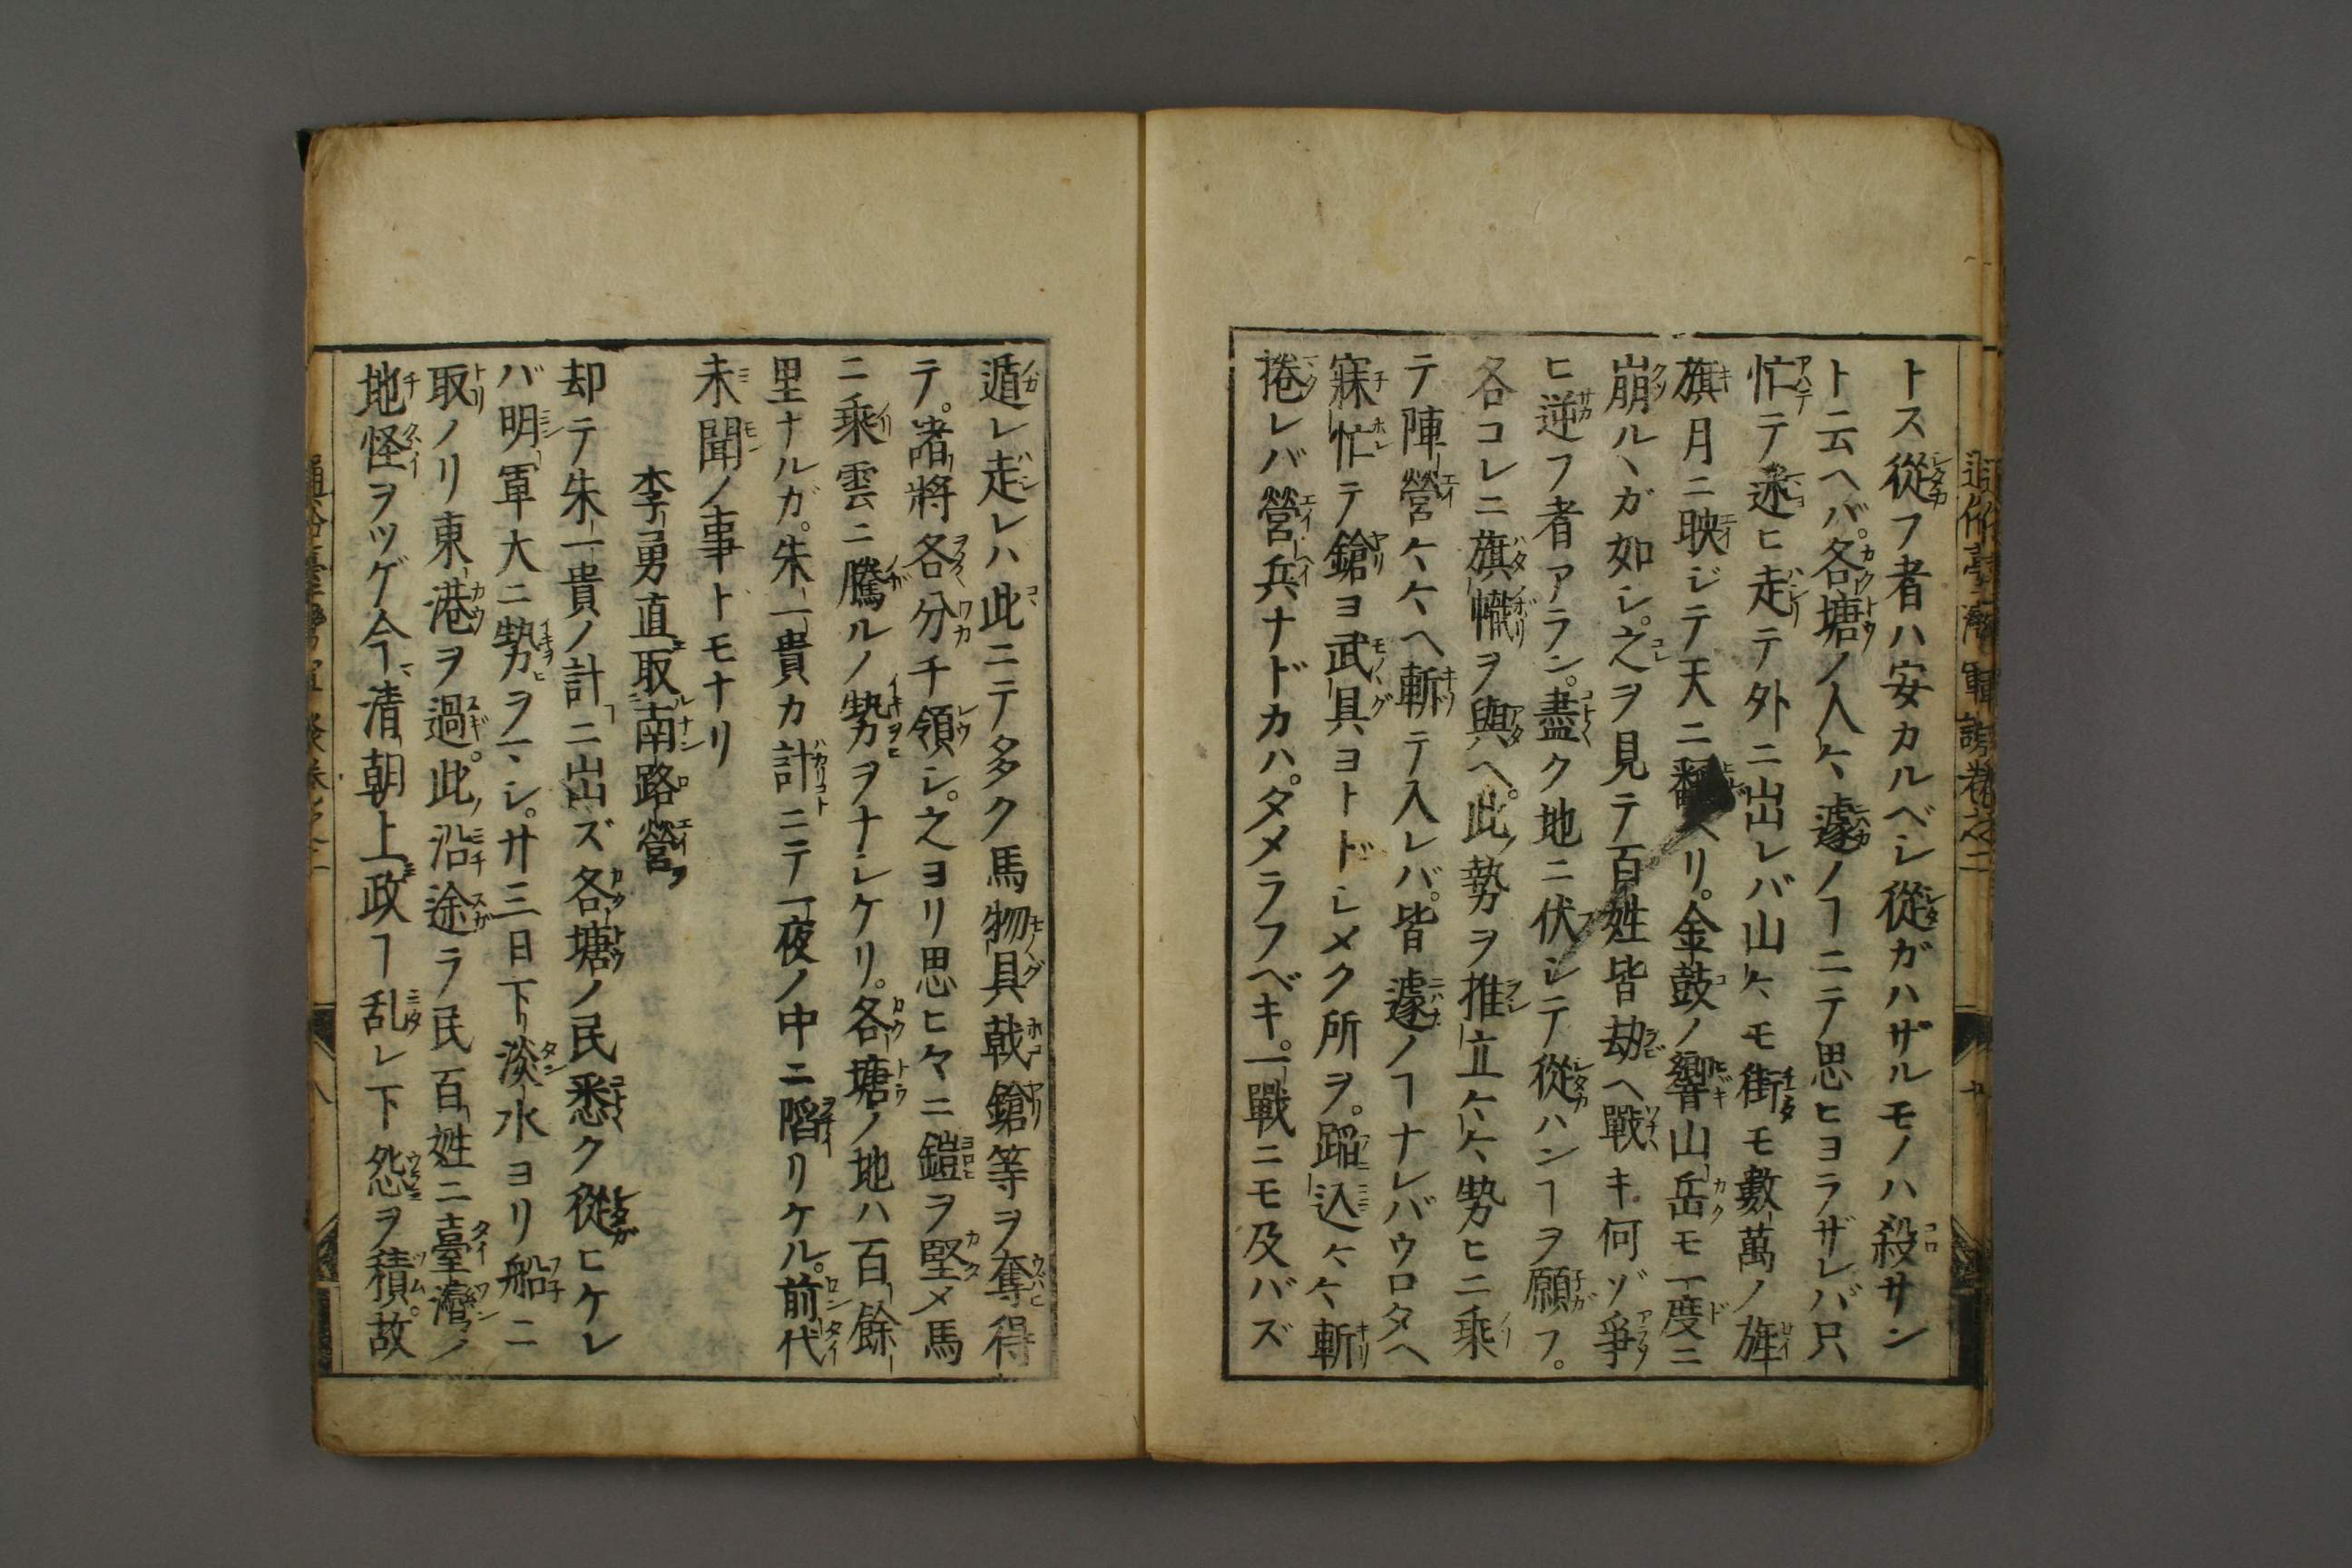 トス從フ者ハ安カルベシ從ガハザルモノハ殺サン
ト云ヘバ。各塘ノ人々、遽ノヿニテ思ヒヨラザレバ只
忙テ迷ヒ走テ外ニ出レバ山々、モ街モ數萬ノ旌
旗月ニ映ジテ天ニ飜ヘリ。金鼓ノ響山岳モ一度ニ
崩ルヽガ如シ。之ヲ見テ百姓皆劫ヘ戰キ何ゾ爭
ヒ逆フ者アラン。盡ク地ニ伏シテ從ハンヿヲ願フ。
各コレニ旗幟ヲ與ヘ。此勢ヲ推立々々、勢ヒニ乘
テ陣營々々、ヘ斬テ入レバ。皆遽ノヿナレバウロタヘ
寐忙テ鎗ヨ武具ヨトドシメク所ヲ。蹈込々々斬
捲レバ營兵ナドカハ。タメラフベキ。一戰ニモ及バズ
遁レ走レハ此ニテ多ク馬物具戟鎗等ヲ奪得
テ。諸將各分チ領シ。之ヨリ思ヒ々ニ鎧ヲ堅メ馬
ニ乘雲ニ騰ルノ勢ヲナシケリ。各塘ノ地ハ百餘
里ナルガ。朱一貴カ計ニテ一夜ノ中ニ䧟リケル。前代
未聞ノ事トモナリ
李勇直取南路營
却テ朱一貴ノ計ニ出ズ各塘ノ民悉ク從ヒケレ
バ明軍大ニ勢ヲマシ。廿三日下淡水ヨリ船ニ
取ノリ東港ヲ過ギ。此沿途ラ民百姓ニ臺灣ノ
地怪ヲツゲ今清朝上政ヿ乱レ下怨ヲ積ム。故
通俗臺灣軍談卷之二